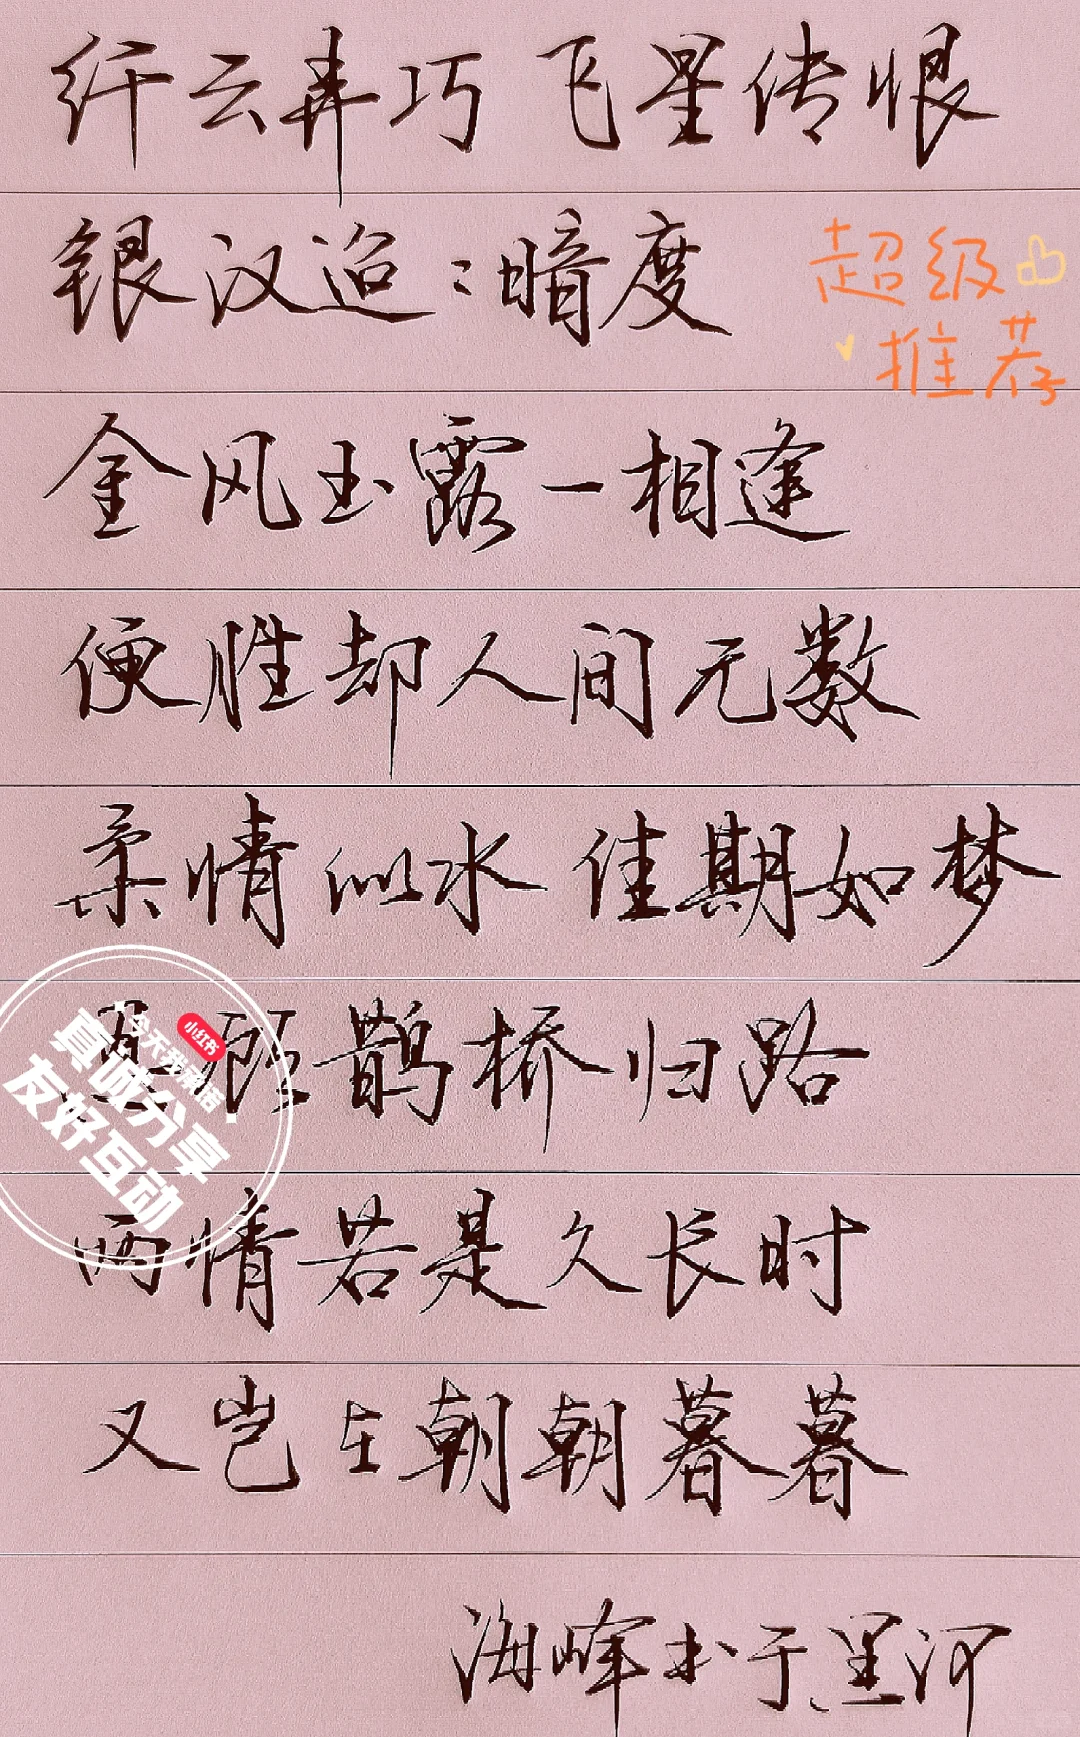 纤云弄巧 飞星传恨
银汉迢:暗度
超级
推荐
金风玉露一相逢
便胜却人间无数
柔情似水 佳期如梦
顾鹊桥归路
小红书
今天我承诺
真诚分享
友好互动
两情若是久长时
又岂在朝朝暮暮
海峰书于黑河